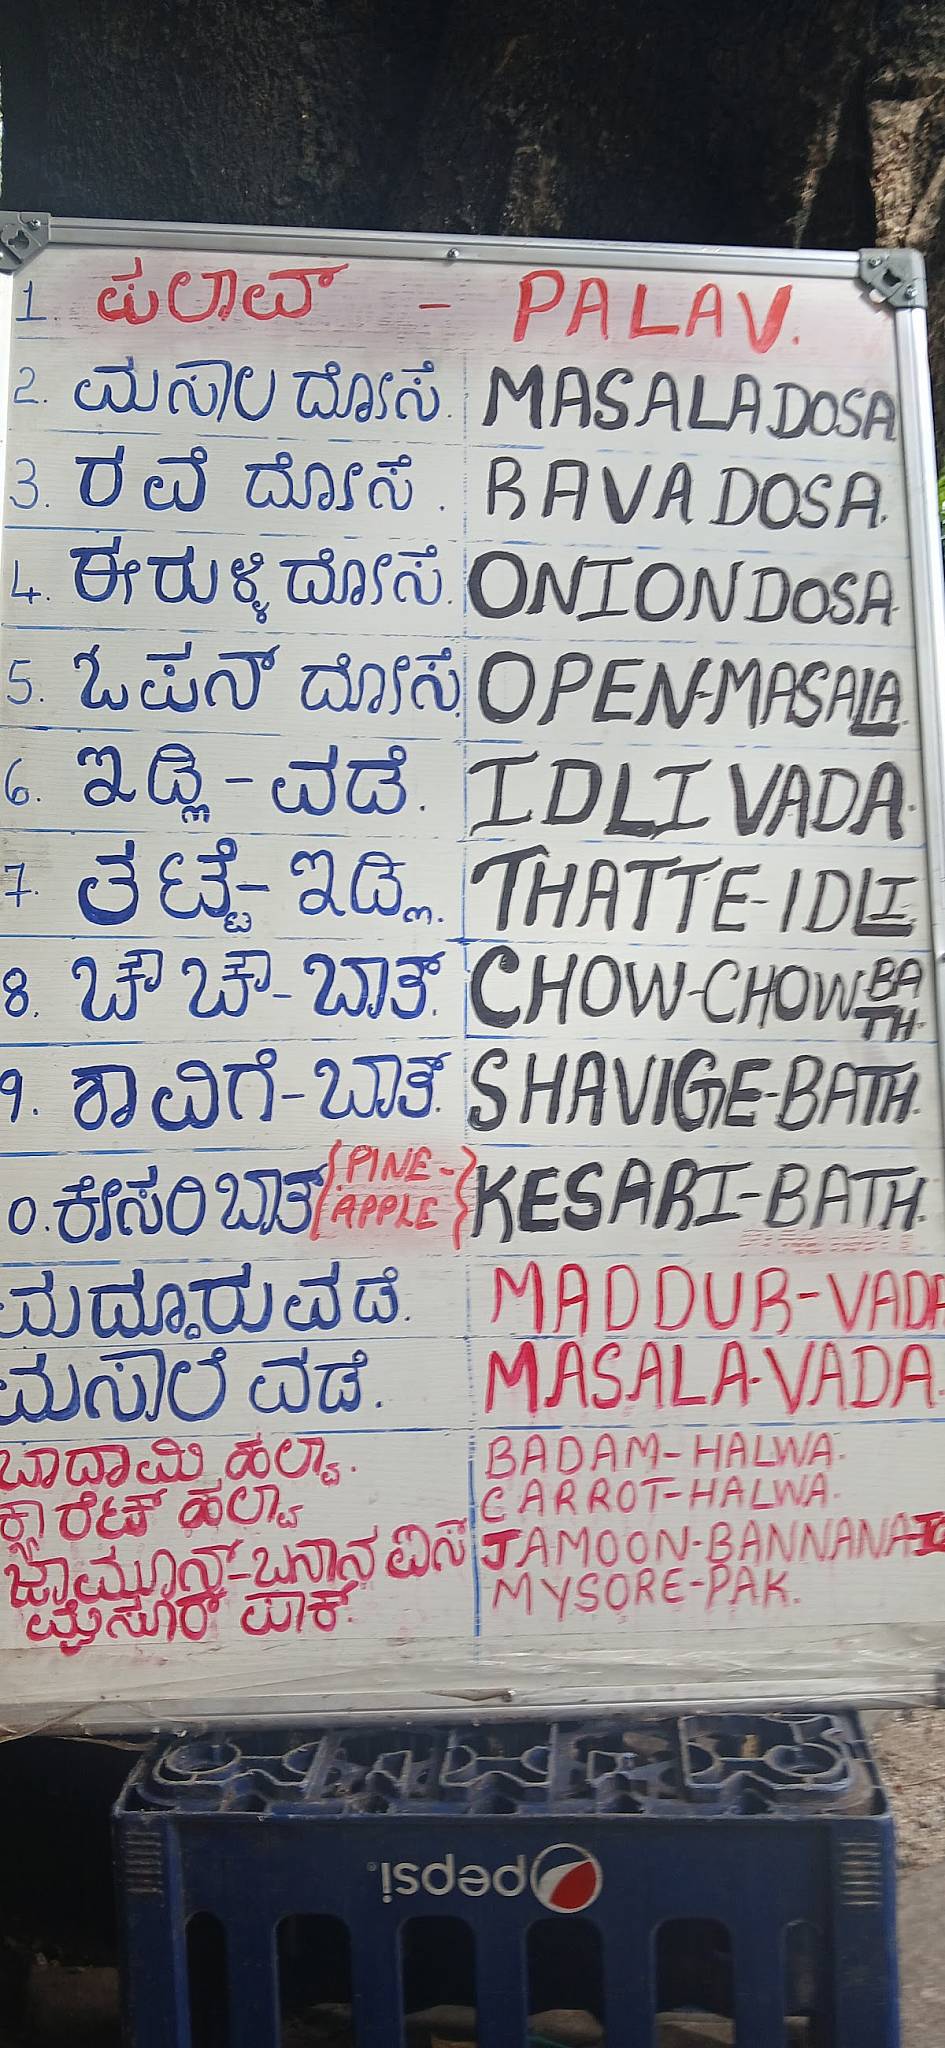 1. ಪಲಾವ್ - PALAV.
2. ಮಸಾಲ ದೋಸೆ. MASALA DOSA
3. ರವೆ ದೋಸೆ. RAVA DOSA.
4. ಈರುಳ್ಳಿ ದೋಸೆ. ONION DOSA.
5. ಓಪನ್ ದೋಸೆ. OPEN-MASALA.
6. ಇಡ್ಲಿ - ವಡೆ. IDLI VADA.
7. ತಟ್ಟೆ- ಇಡ್ಲಿ. THATTE-IDLI.
8. ಚೌ ಚೌ-ಬಾತ್. CHOW-CHOW BATH.
9. ಶಾವಿಗೆ-ಬಾತ್. SHAVIGE-BATH.
0. ಕೇಸರಿ ಬಾತ್ {PINE-APPLE} KESARI-BATH.
ಮದ್ದೂರು ವಡೆ. MADDUR-VADA
ಮಸಾಲೆ ವಡೆ. MASALA-VADA.
ಬಾದಾಮಿ ಹಲ್ವಾ. BADAM-HALWA.
ಕ್ಯಾರೆಟ್ ಹಲ್ವಾ CARROT-HALWA.
ಜಾಮೂನ್-ಬನಾನ JAMOON-BANNANA
ಮೈಸೂರ್ ಪಾಕ್. MYSORE-PAK.
pepsi